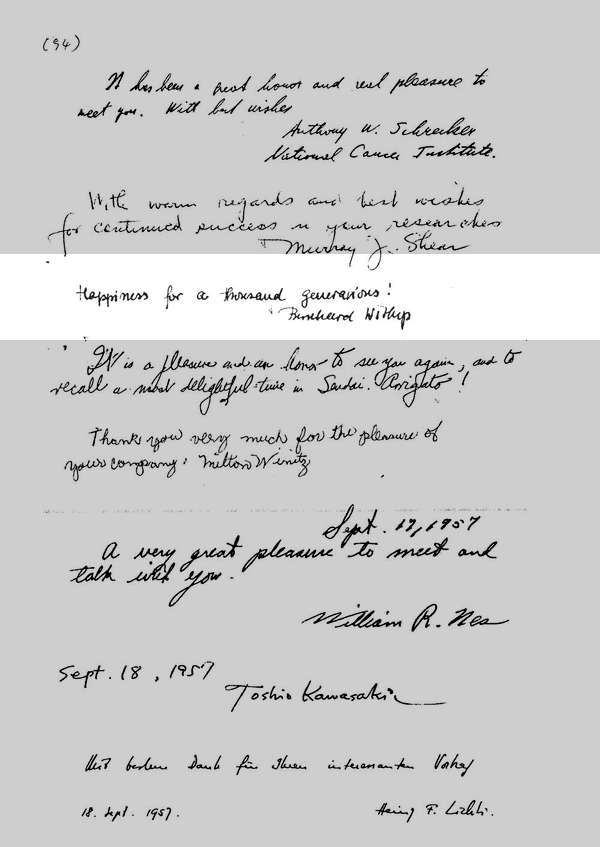 (94)
It has been a great honor and real pleasure to
meet you. With best wishes
Anthony W. Schrecker
National Cancer Institute.
With warm regards and best wishes
for continued success in your researches
Murray J. Shear
Happiness for a thousand generations!
Bernhard Witkop
It is a pleasure and an honor to see you again, and to
recall a most delightful time in Sendai. Arigato!
Thank you very much for the pleasure of
your company. Milton Winitz
Sept. 17, 1957
A very great pleasure to meet and
talk with you.
William R. Nes
Sept. 18, 1957
Toshio Kawasaki
Mit bestem Dank für Ihren interessanten Vortrag
18. Sept. 1957.
F.